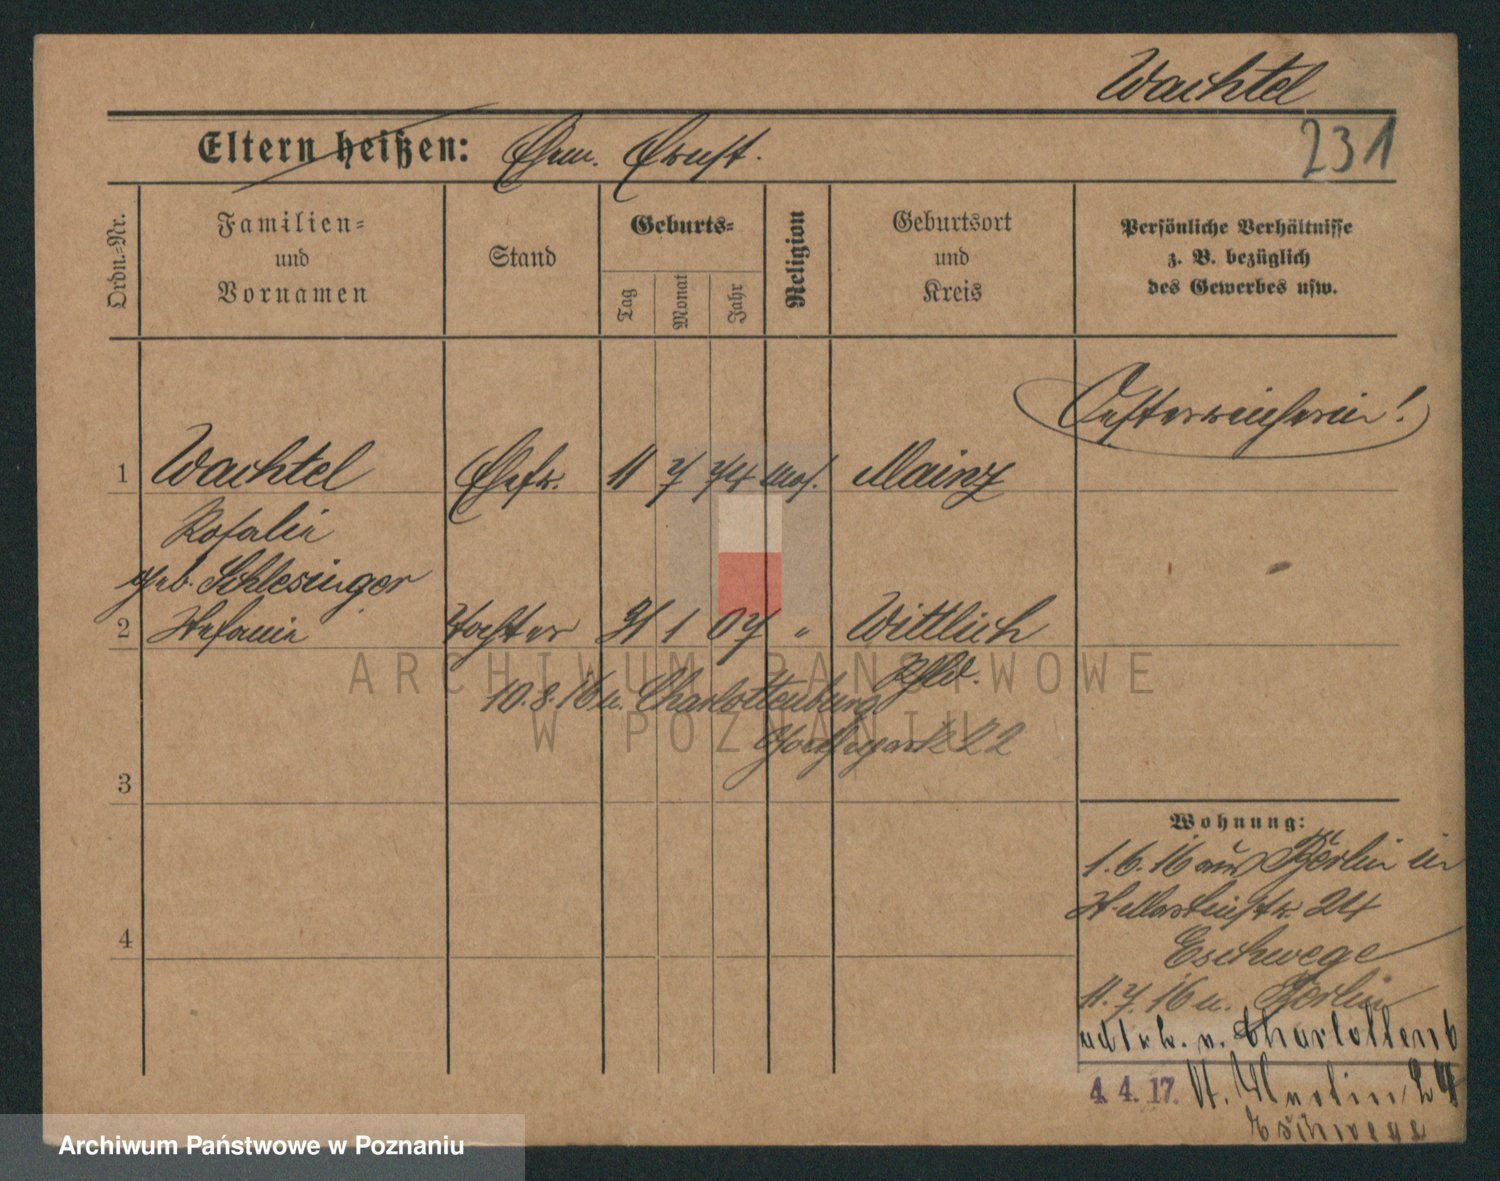 Wachtel
231
Eltern heißen: Ehem. Ernst.
Ordn.-Nr.
Familien-
und
Vornamen
Stand
Geburts-
Tag
Monat
Jahr
Religion
Geburtsort
und
Kreis
Persönliche Verhältnisse
z. B. bezüglich
des Gewerbes usw.
Oesterreicherin!
1 Wachtel Ehefr. 11 7 74 mos. Mainz
Rosalie
geb. Schlesinger
2 Stefanie Tochter 31 1 07 " Wittlich
Rhld.
10.8.16 n. Charlottenburg
22
3
4
Wohnung:
1.6.16 aus Berlin in
St. Martinstr. 24
Eschwege
11.7.16 n. Berlin
v. Charlottenb
4.4.17. St. Martin 24
Eschwege
ARCHIWUM PAŃSTWOWE
W POZNANIU
Archiwum Państwowe w Poznaniu